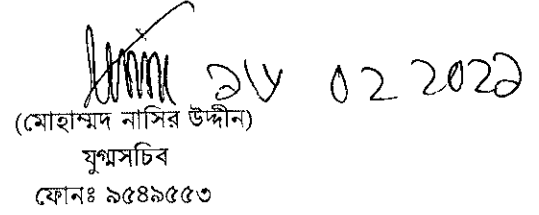 02 202১
(মোহাম্মদ নাসির উদ্দীন)
যুগ্মসচিব
ফোনঃ ৯৫৪৯৫৫৩